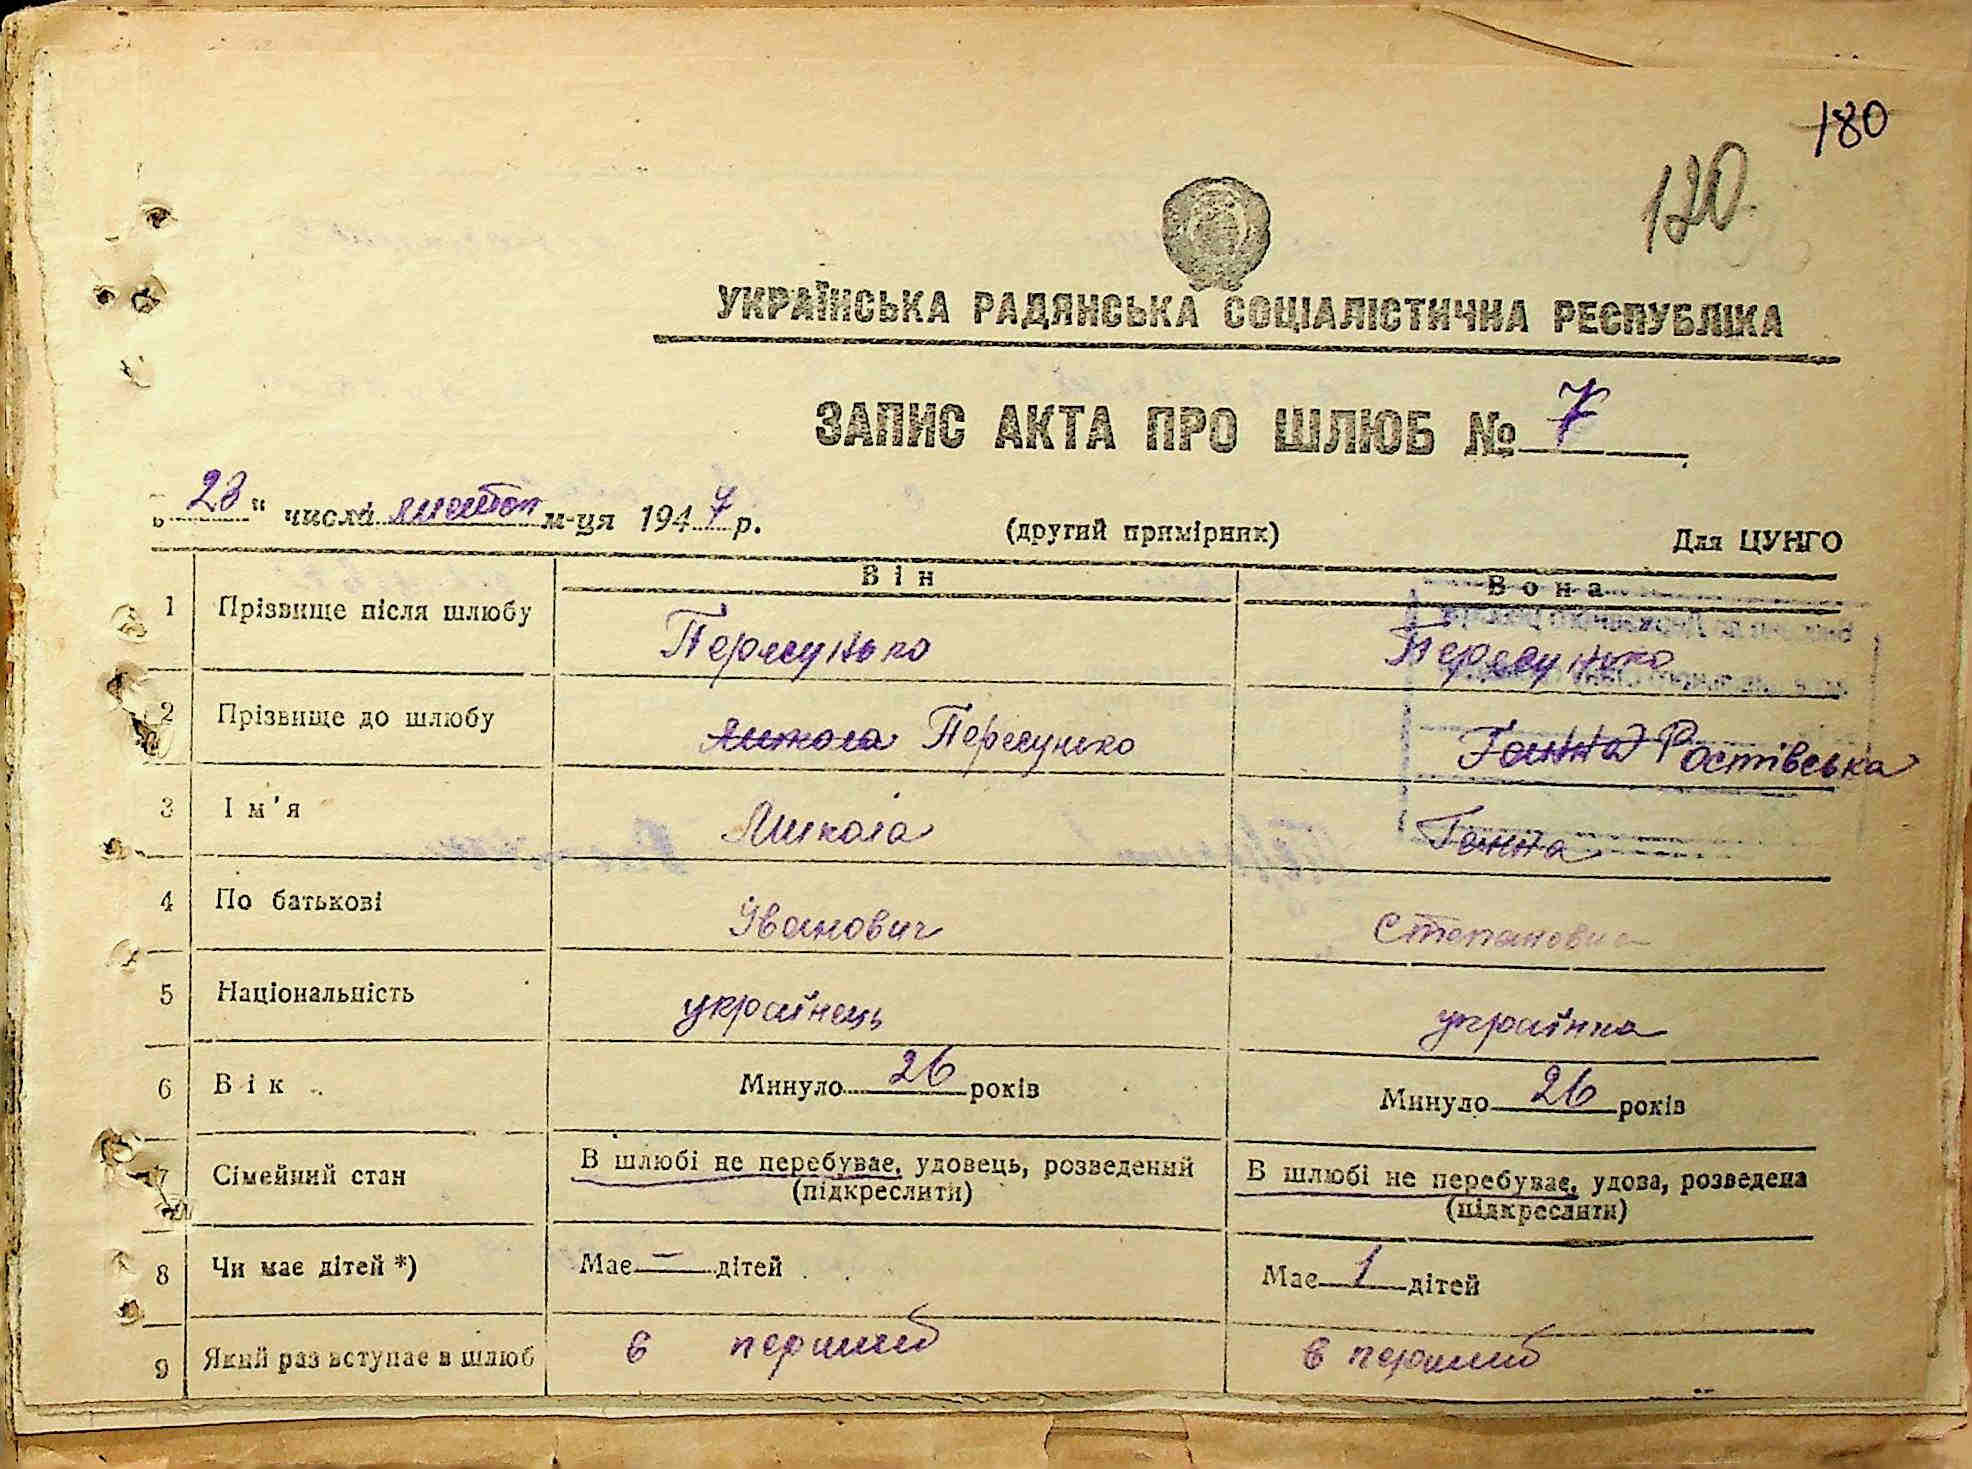 180
120
УКРАЇНСЬКА РАДЯНСЬКА СОЦІАЛІСТИЧНА РЕСПУБЛІКА
ЗАПИС АКТА ПРО ШЛЮБ № 7
"23" числа м-ця 1947 р. (другий примірник) Для ЦУНГО
Він Вона
1 Прізвище після шлюбу Пересунько Пересунько
2 Прізвище до шлюбу Микола Пересунько Ганна Ростівська
3 Ім'я Микола Ганна
4 По батькові Іванович Степановна
5 Національність українець українка
6 Вік Минуло 26 років Минуло 26 років
7 Сімейний стан В шлюбі не перебуває, удовець, розведений (підкреслити) В шлюбі не перебуває, удова, розведена (підкреслити)
8 Чи має дітей *) Має — дітей Має 1 дітей
9 Який раз вступає в шлюб в перший в перший